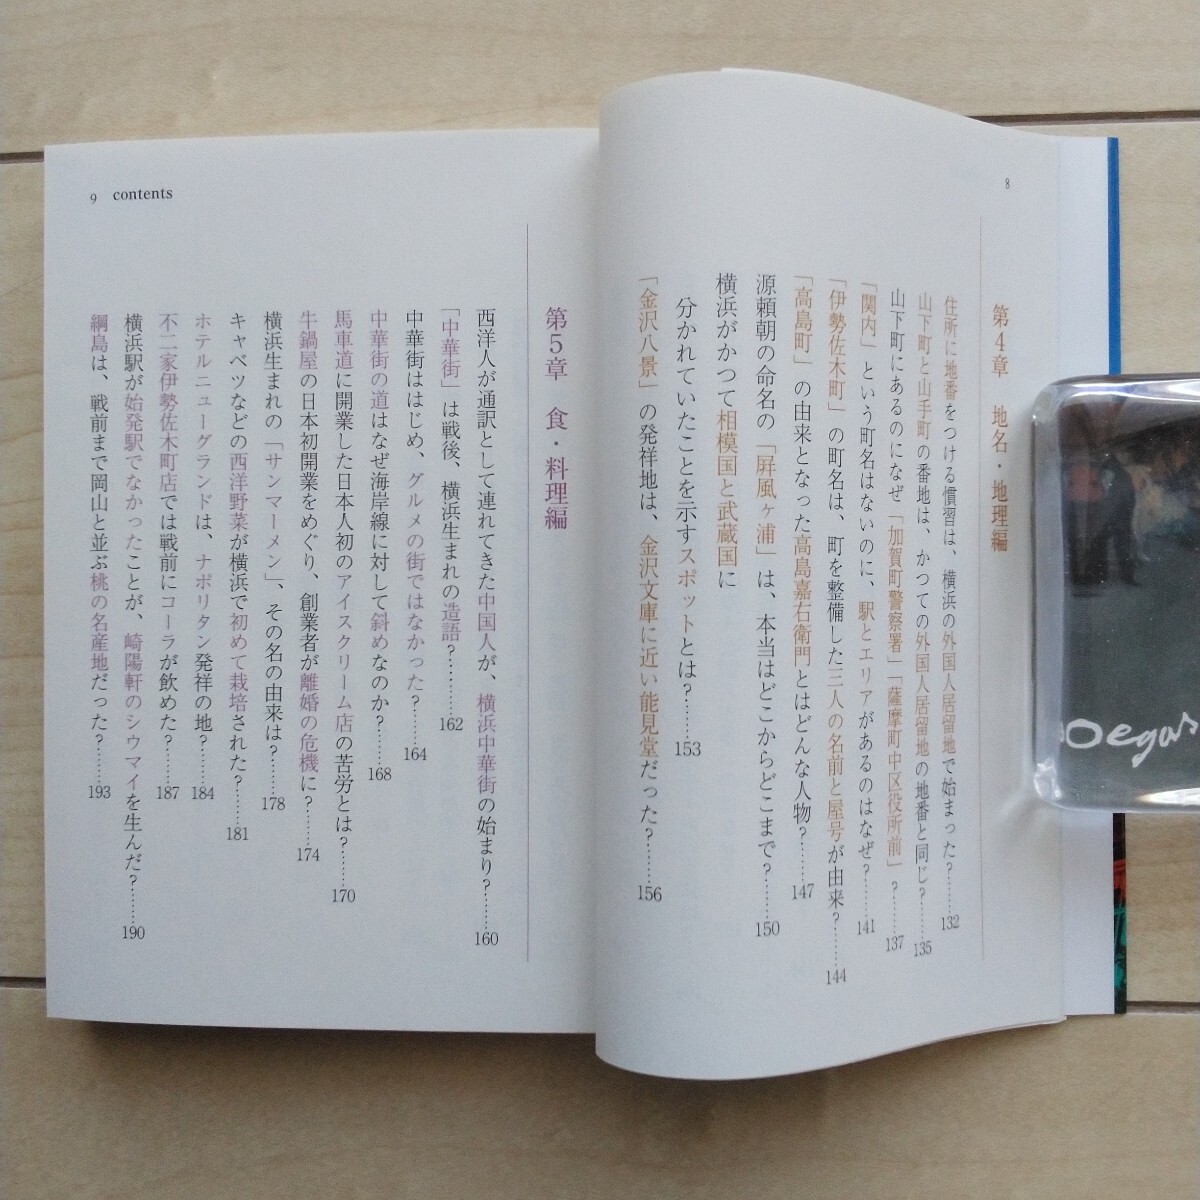 8
第4章 地名・地理編
住所に地番をつける慣習は、横浜の外国人居留地で始まった?………132
山下町と山手町の番地は、かつての外国人居留地の地番と同じ?………135
山下町にあるのになぜ「加賀町警察署」「薩摩町中区役所前」?………137
「関内」という町名はないのに、駅とエリアがあるのはなぜ?………141
「伊勢佐木町」の町名は、町を整備した三人の名前と屋号が由来?………144
「高島町」の由来となった高島嘉右衛門とはどんな人物?………147
源頼朝の命名の「屛風ヶ浦」は、本当はどこからどこまで?………150
横浜がかつて相模国と武蔵国に
分かれていたことを示すスポットとは?………153
「金沢八景」の発祥地は、金沢文庫に近い能見堂だった?………156
9 contents
第5章 食・料理編
西洋人が通訳として連れてきた中国人が、横浜中華街の始まり?………160
「中華街」は戦後、横浜生まれの造語?………162
中華街ははじめ、グルメの街ではなかった?………164
中華街の道はなぜ海岸線に対して斜めなのか?………168
馬車道に開業した日本人初のアイスクリーム店の苦労とは?………170
牛鍋屋の日本初開業をめぐり、創業者が離婚の危機に?………174
横浜生まれの「サンマーメン」、その名の由来は?………178
キャベツなどの西洋野菜が横浜で初めて栽培された?………181
ホテルニューグランドは、ナポリタン発祥の地?………184
不二家伊勢佐木町店では戦前にコーラが飲めた?………187
横浜駅が始発駅でなかったことが、崎陽軒のシウマイを生んだ?………190
綱島は、戦前まで岡山と並ぶ桃の名産地だった?………193